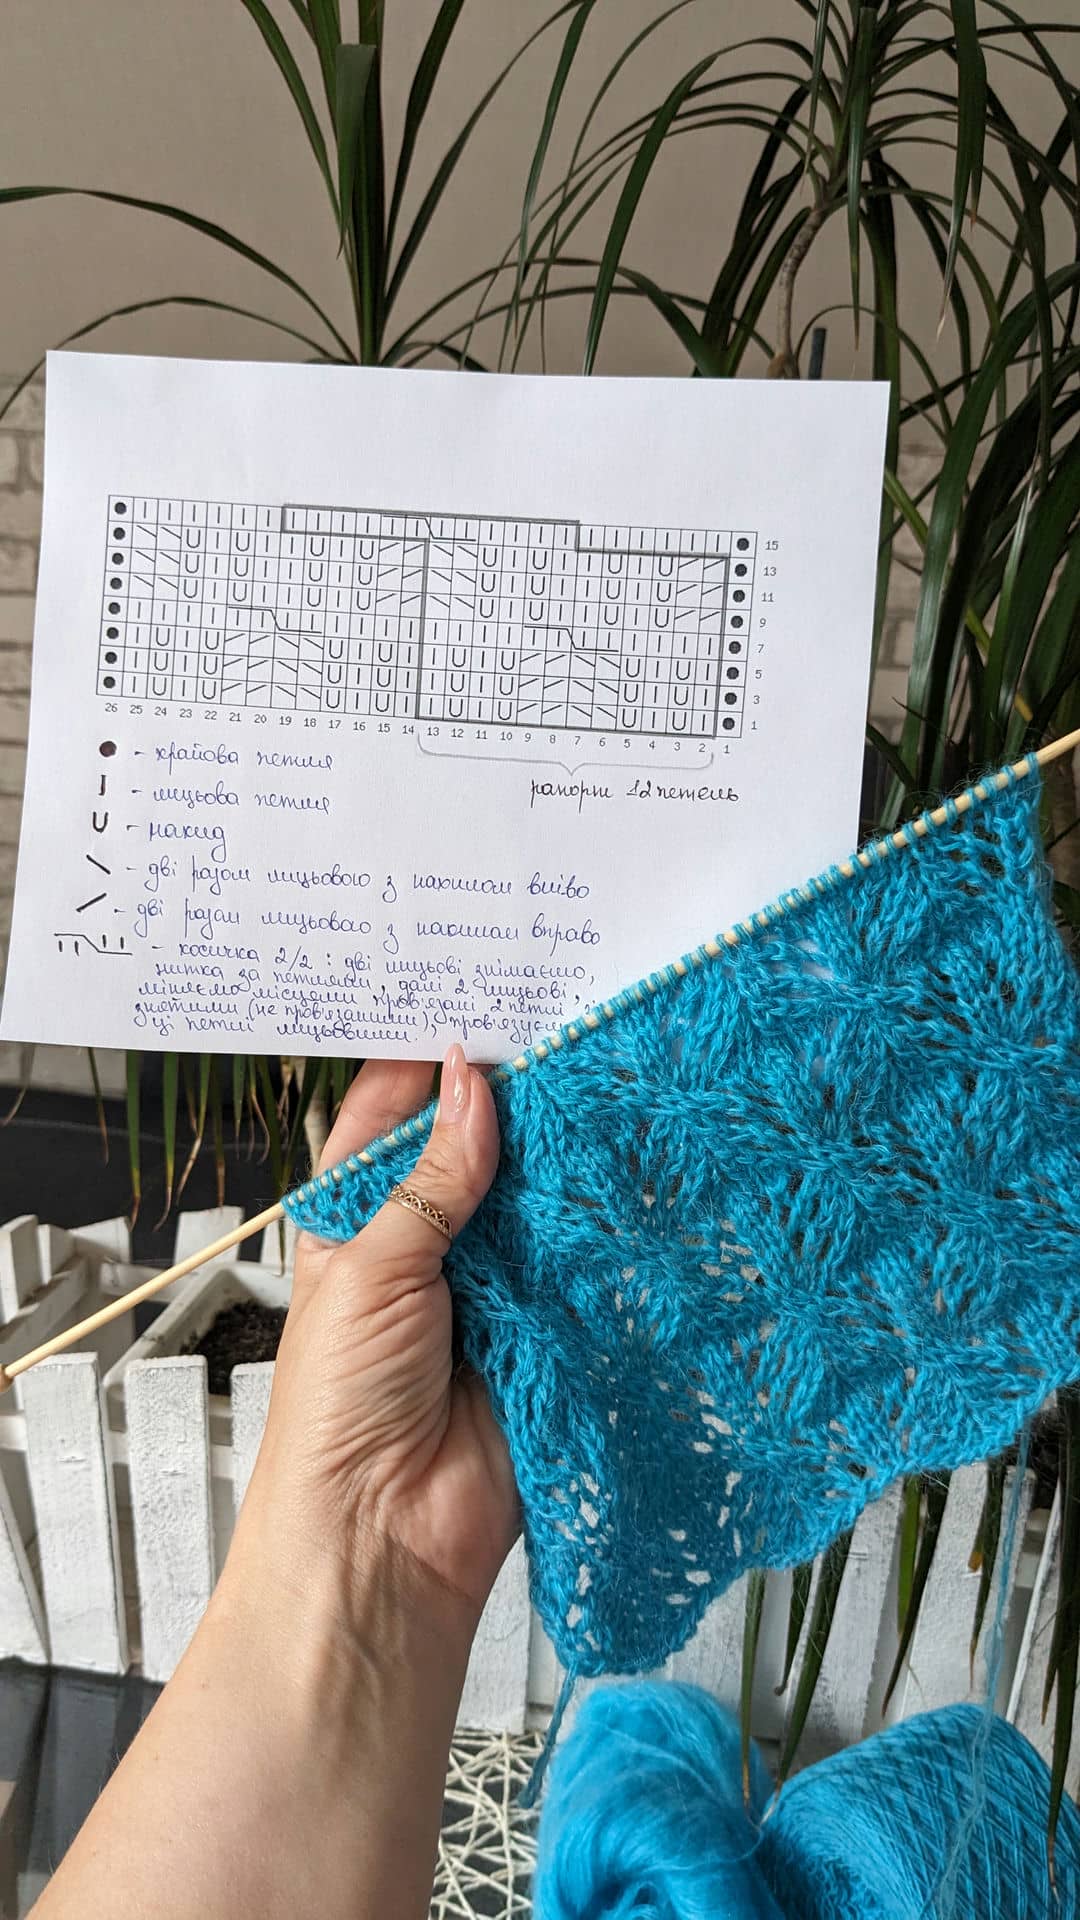 15
13
11
9
7
5
3
1
26 25 24 23 22 21 20 19 18 17 16 15 14 13 12 11 10 9 8 7 6 5 4 3 2 1
рапорт 12 петель
- крайова петля
- лицьова петля
- накид
- дві разом лицьовою з нахилом вліво
- дві разом лицьовою з нахилом вправо
- косичка 2/2: дві лицьові знімаємо,
нитка за петлями, далі 2 лицьові,
міняємо місцями пров'язані 2 петлі зі
знятими (не пров'язаними), пров'язуєм
ці петлі лицьовими.